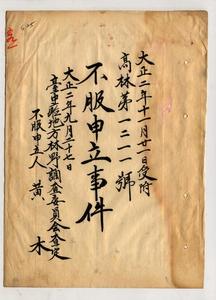 大正二年十一月廿一日受附
高林第一二一一號
不服申立事件
大正二年九月二十七日
臺中廳地方林野調查委員會查定
不服申立人 黃 木